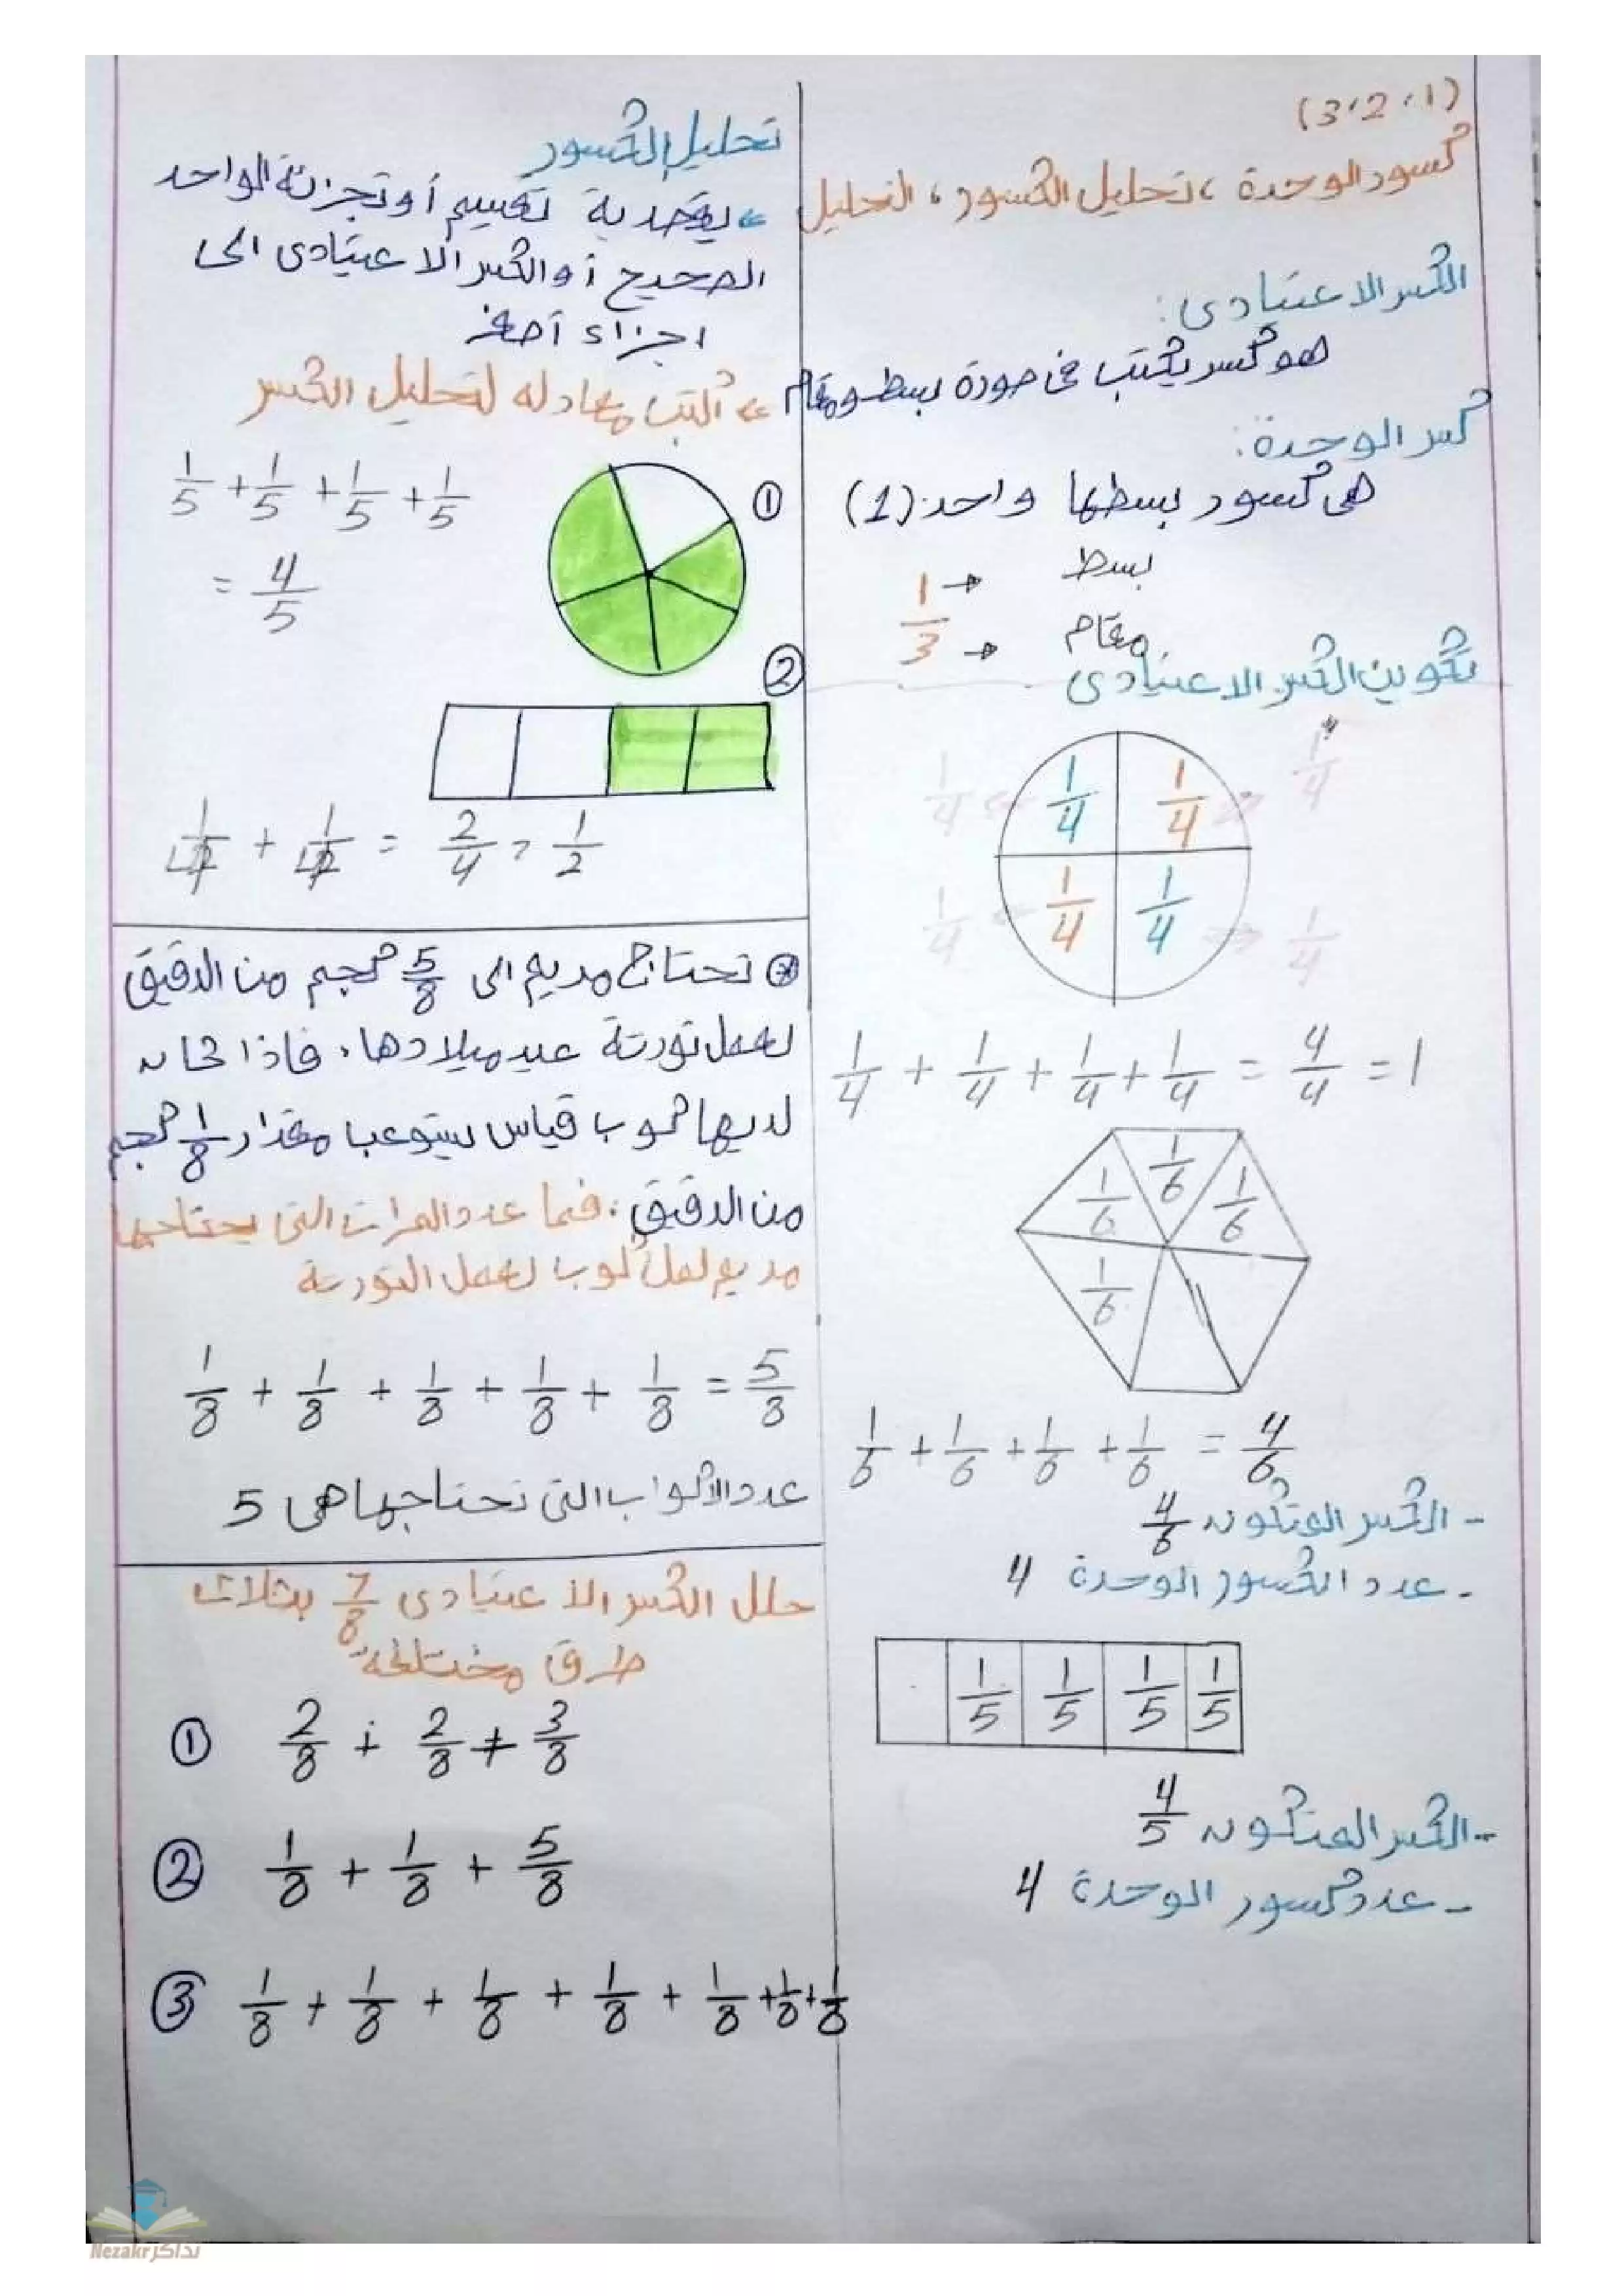 (1، 2، 3)
كسور الوحدة، تحليل الكسور، التحليل
الكسر الاعتيادى:
هو كسر يكتب فى صورة بسط ومقام
كسر الوحدة:
هى كسور بسطها واحد (1)
1/3 → بسط
→ مقام
تكوين الكسر الاعتيادى
1/4 1/4
1/4 1/4
1/4 + 1/4 + 1/4 + 1/4 = 4/4 = 1
1/6 1/6 1/6
1/6
1/6 + 1/6 + 1/6 + 1/6 = 4/6
- الكسر المتكون 4/6
- عدد الكسور الوحدة 4
1/5 1/5 1/5 1/5
- الكسر المتكون 4/5
- عدد كسور الوحدة 4
تحليل الكسور
يقصد به تقسيم أو تجزئة الواحد
الصحيح أو الكسر الاعتيادى الى
اجزاء أصغر
اكتب معادله لتحليل الكسر
① 1/5 + 1/5 + 1/5 + 1/5
= 4/5
②
1/4 + 1/4 = 2/4 , 1/2
تحتاج مريم الى 5/8 كجم من الدقيق
لعمل تورتة عيد ميلادها، فاذا كان
لديها كوب قياس يستوعب مقدار 1/8 كجم
من الدقيق: فما عدد المرات التى يحتاجها
مريم لملأ كوب لعمل التورتة
1/8 + 1/8 + 1/8 + 1/8 + 1/8 = 5/8
عدد الأكواب التى تحتاجها هى 5
حلل الكسر الاعتيادى 7/8 بثلاث
طرق مختلفة
① 2/8 + 2/8 + 3/8
② 1/8 + 1/8 + 5/8
③ 1/8 + 1/8 + 1/8 + 1/8 + 1/8 + 1/8 + 1/8
Nezakr نذاكر